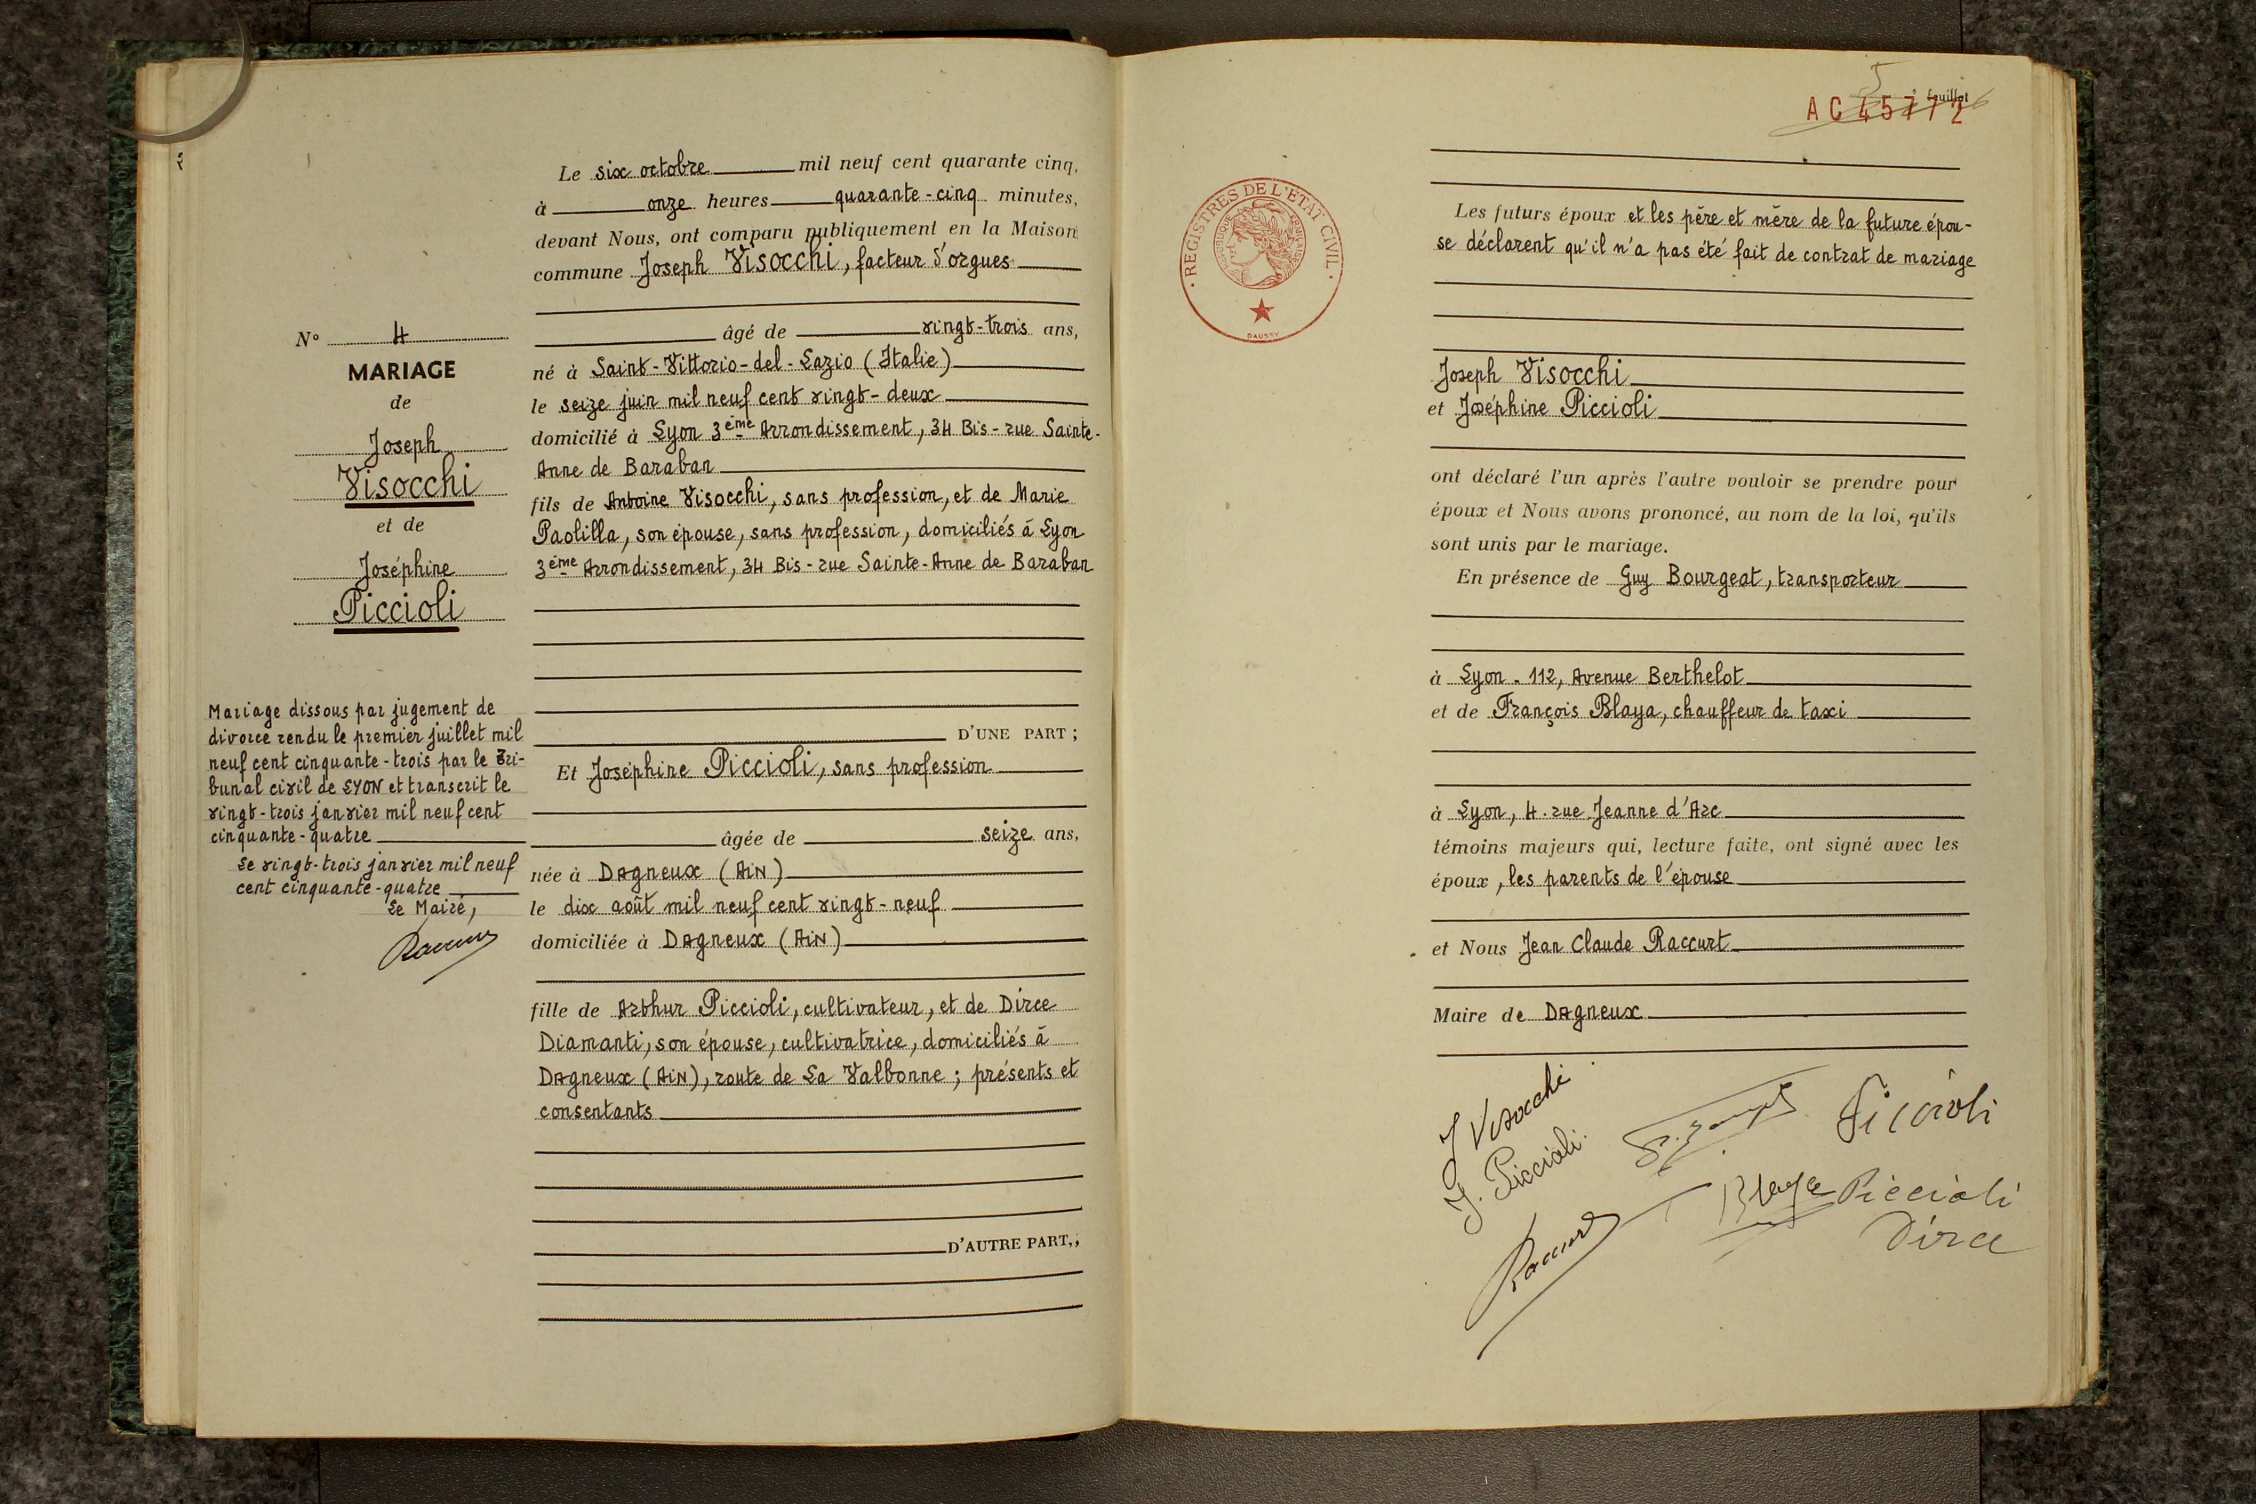 Le six octobre mil neuf cent quarante cinq,
à onze heures quarante-cinq minutes,
devant Nous, ont comparu publiquement en la Maison
commune Joseph Visocchi, facteur d'orgues
âgé de vingt-trois ans,
né à Saint-Vittorio-del-Lazio (Italie)
le seize juin mil neuf cent vingt-deux
domicilié à Lyon 3ème Arrondissement, 34 Bis - rue Sainte-
Anne de Baraban
fils de Antoine Visocchi, sans profession, et de Marie
Paolilla, son épouse, sans profession, domiciliés à Lyon
3ème Arrondissement, 34 Bis - rue Sainte-Anne de Baraban
D'UNE PART ;
Et Joséphine Piccioli, sans profession
âgée de seize ans,
née à Dagneux (Ain)
le dix août mil neuf cent vingt-neuf
domiciliée à Dagneux (Ain)
fille de Arthur Piccioli, cultivateur, et de Dirce
Diamanti, son épouse, cultivatrice, domiciliés à
Dagneux (Ain), route de La Valbonne ; présents et
consentants
D'AUTRE PART,;
N° 4
MARIAGE
de
Joseph
Visocchi
et de
Joséphine
Piccioli
Mariage dissous par jugement de
divorce rendu le premier juillet mil
neuf cent cinquante-trois par le Tri-
bunal civil de LYON et transcrit le
vingt-trois janvier mil neuf cent
cinquante-quatre
Le vingt-trois janvier mil neuf
cent cinquante-quatre
Le Maire,
Raccurt
5
feuillet
AC 45772
REGISTRES DE L'ETAT CIVIL
REPUBLIQUE FRANCAISE
DAUSSY
Les futurs époux et les père et mère de la future épou-
se déclarent qu'il n'a pas été fait de contrat de mariage
Joseph Visocchi
et Joséphine Piccioli
ont déclaré l'un après l'autre vouloir se prendre pour
époux et Nous avons prononcé, au nom de la loi, qu'ils
sont unis par le mariage.
En présence de Guy Bourgeat, transporteur
à Lyon - 112, Avenue Berthelot
et de François Blaya, chauffeur de taxi
à Lyon, 4. rue Jeanne d'Arc
témoins majeurs qui, lecture faite, ont signé avec les
époux, les parents de l'épouse
et Nous Jean Claude Raccurt
Maire de Dagneux
J Visocchi
J. Piccioli.
Piccioli
Blaya
Piccioli
Dirce
Raccurt